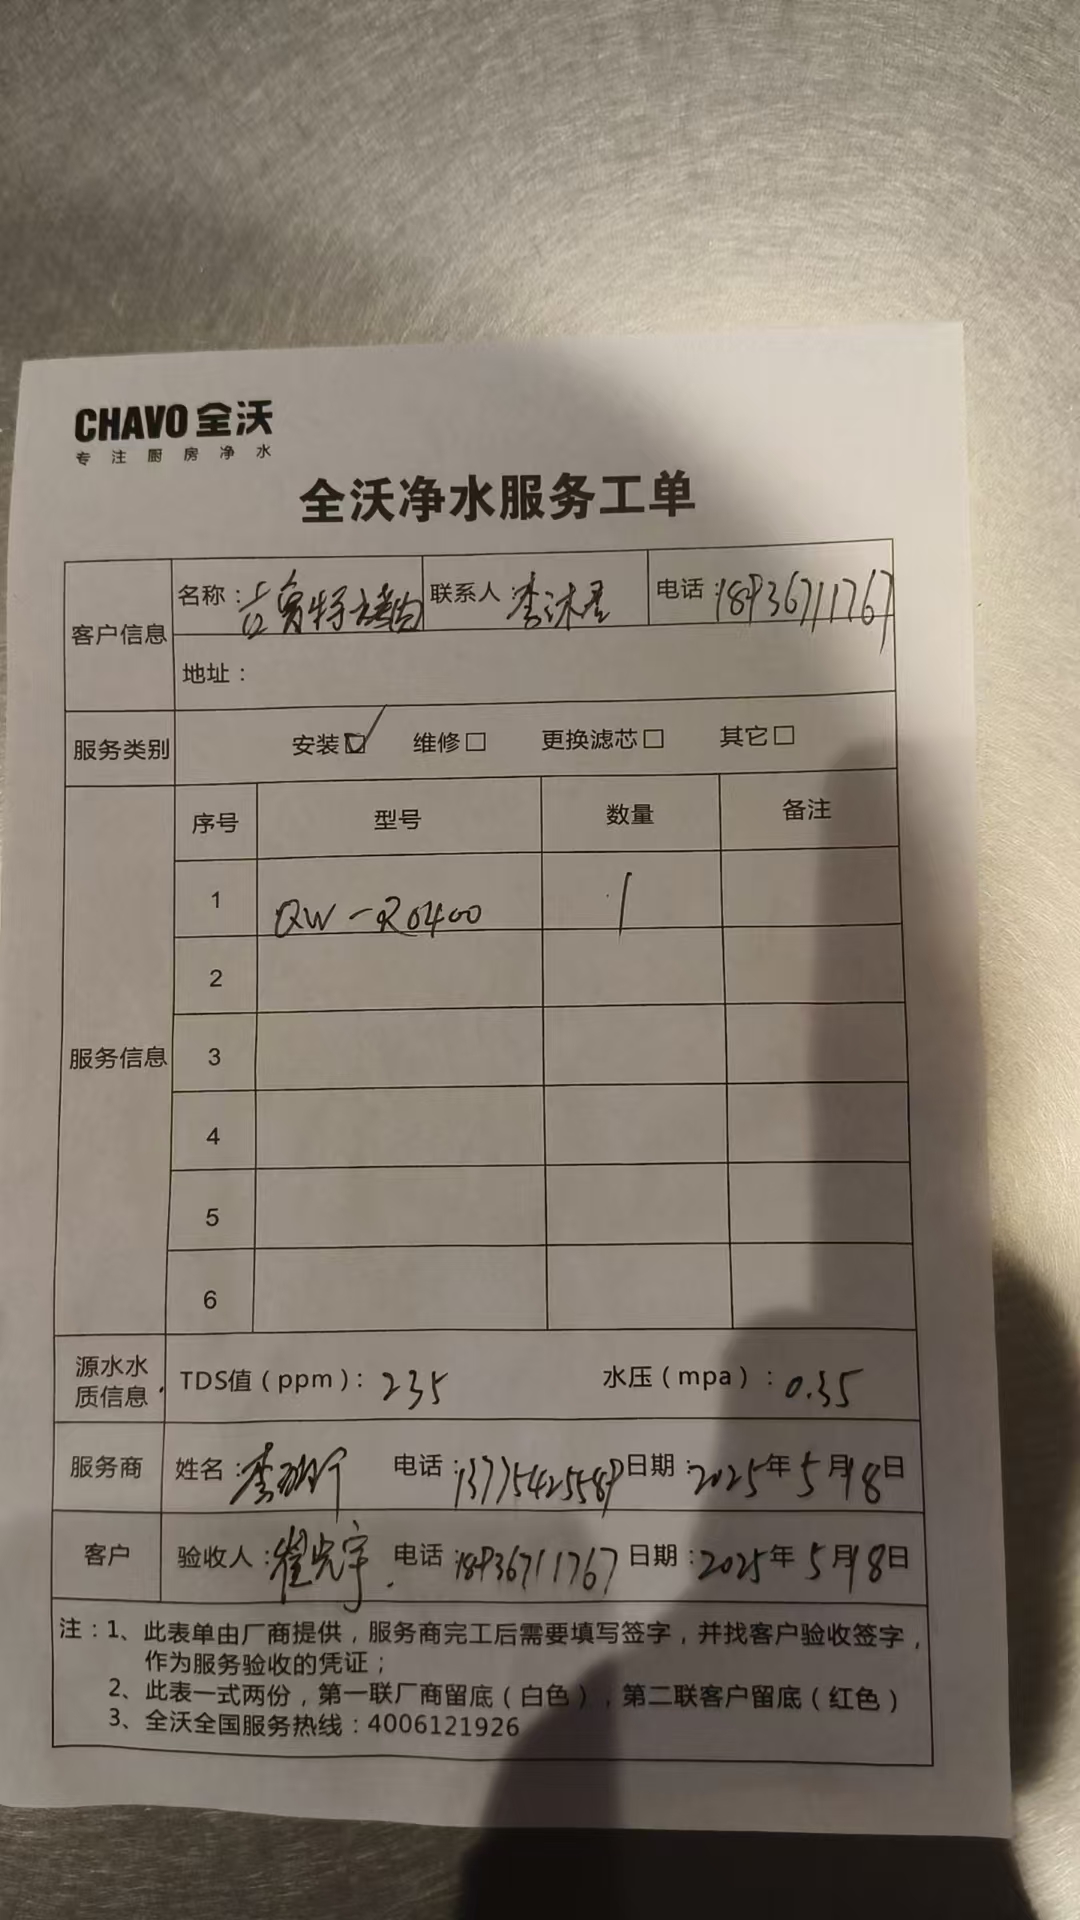 CHAVO 全沃
专注厨房净水
全沃净水服务工单
客户信息 名称：吉鲁特烤肉 联系人 李沐 电话：18936711767
地址：
服务类别 安装☑ 维修□ 更换滤芯□ 其它□
服务信息 序号 型号 数量 备注
1 QW-RO400 1
2
3
4
5
6
源水水质信息 TDS值（ppm）：235 水压（mpa）：0.35
服务商 姓名：李 电话：13775425589 日期：2025年5月18日
客户 验收人：崔光宇 电话：18936711767 日期：2025年5月18日
注：1、此表单由厂商提供，服务商完工后需要填写签字，并找客户验收签字，
作为服务验收的凭证；
2、此表一式两份，第一联厂商留底（白色），第二联客户留底（红色）
3、全沃全国服务热线：4006121926